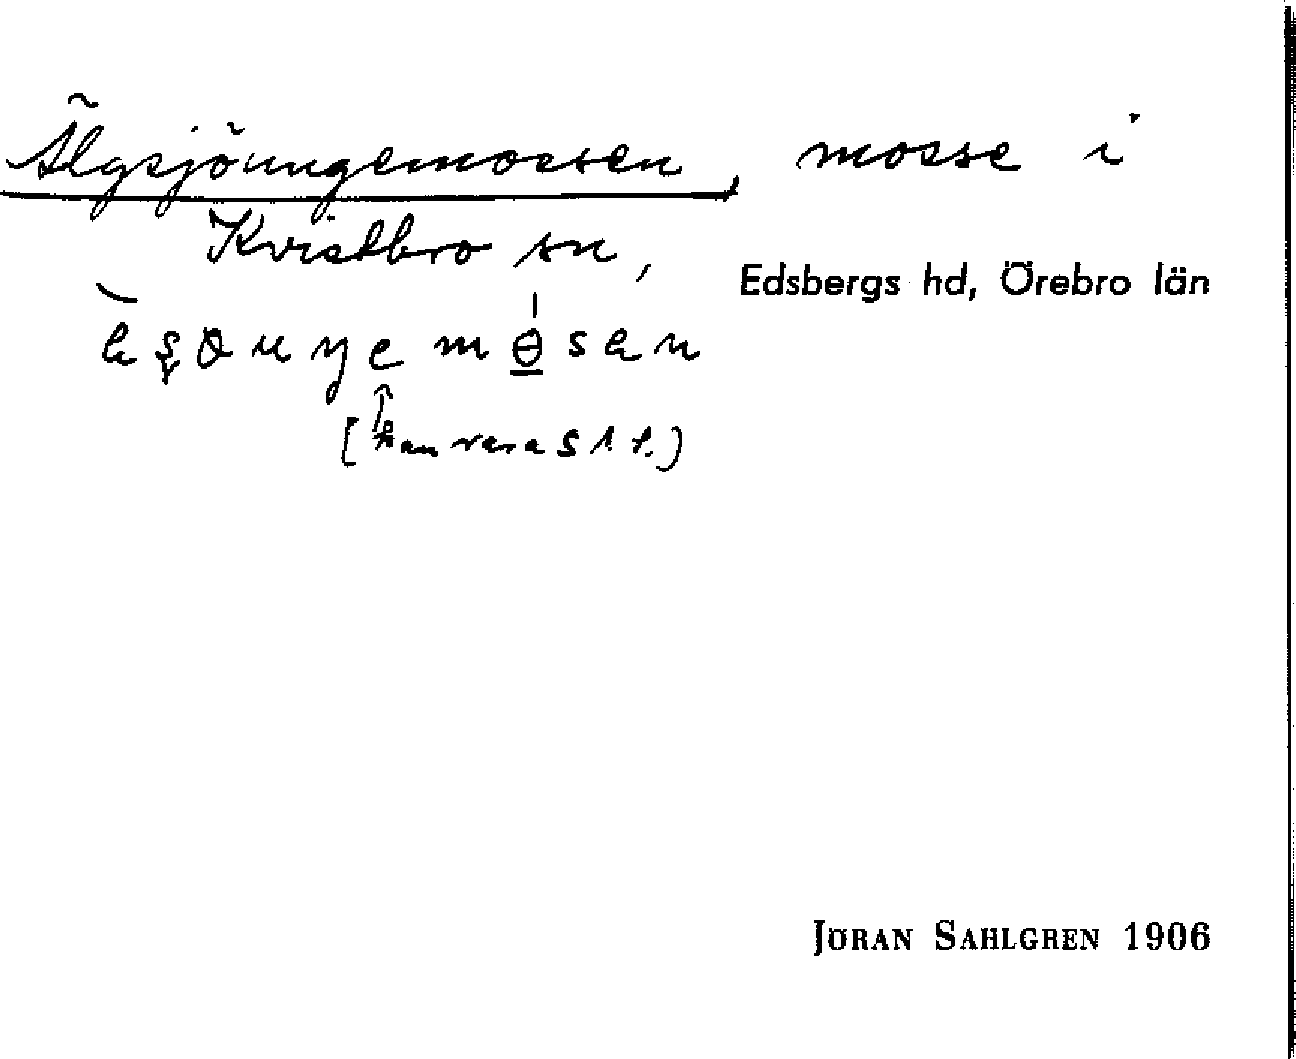 Älgsjöungemossen, mosse i
Kvistbro sn,
Edsbergs hd, Örebro län
[kan vara s. l. f.)
JÖRAN SAHLGREN 1906